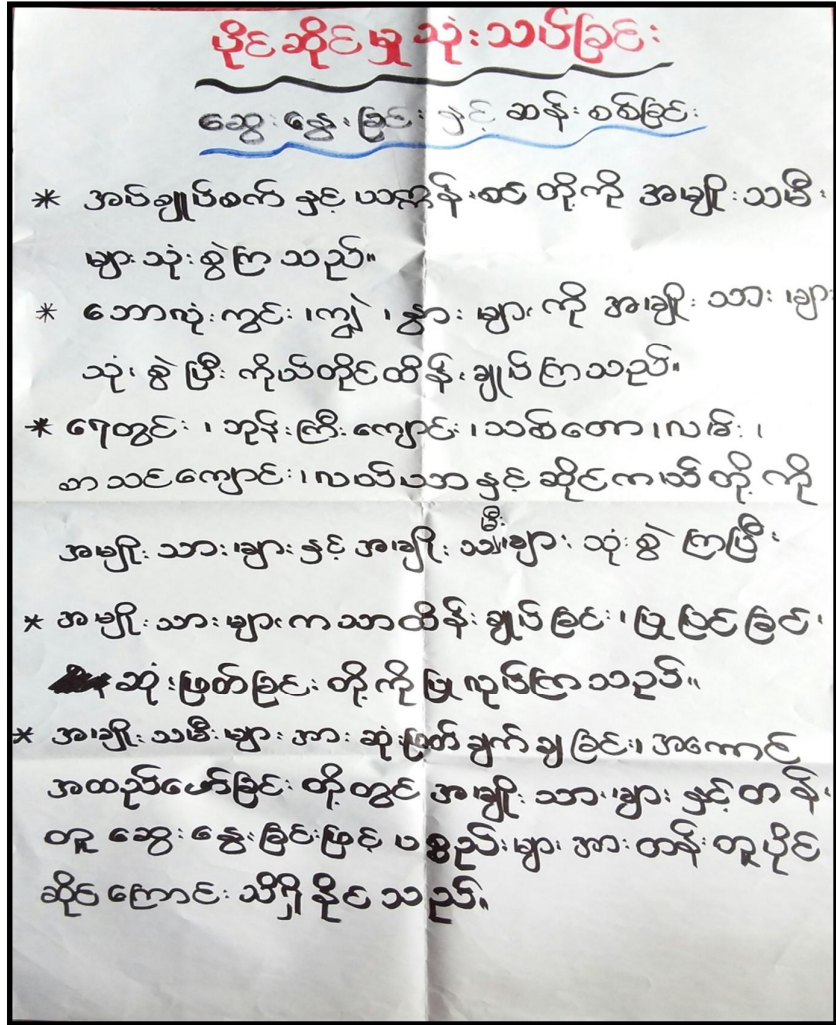 ပိုင်ဆိုင်မှုသုံးသပ်ခြင်း
ဆွေးနွေးခြင်း နှင့် ဆန်းစစ်ခြင်း
* အပ်ချုပ်စက် နှင့် ယက္ကန်းစင် တို့ကို အမျိုးသမီး
များ သုံးစွဲကြသည်။
* ဘောလုံးကွင်း၊ ကျွဲ၊ နွား များကို အမျိုးသားများ
သုံးစွဲပြီး ကိုယ်တိုင်ထိန်းချုပ်ကြသည်။
* ရေတွင်း၊ ဘုန်းကြီးကျောင်း၊ သစ်တော၊ လမ်း၊
စာသင်ကျောင်း၊ လယ်ယာ နှင့် ဆိုင်ကယ်တို့ကို
အမျိုးသားများ နှင့် အမျိုးသမီးများ သုံးစွဲကြပြီး
* အမျိုးသားများက သာထိန်းချုပ်ခြင်း၊ ပြုပြင်ခြင်း၊
ဆုံးဖြတ်ခြင်းတို့ကို ပြုလုပ်ကြသည်။
* အမျိုးသမီးများအား ဆုံးဖြတ်ချက်ချခြင်း၊ အကောင်
အထည်ဖော်ခြင်းတို့တွင် အမျိုးသားများ နှင့်တန်း
တူ ဆွေးနွေးခြင်းဖြင့် ပစ္စည်းများအား တန်းတူပိုင်
ဆိုင်ကြောင်း သိရှိနိုင်သည်။